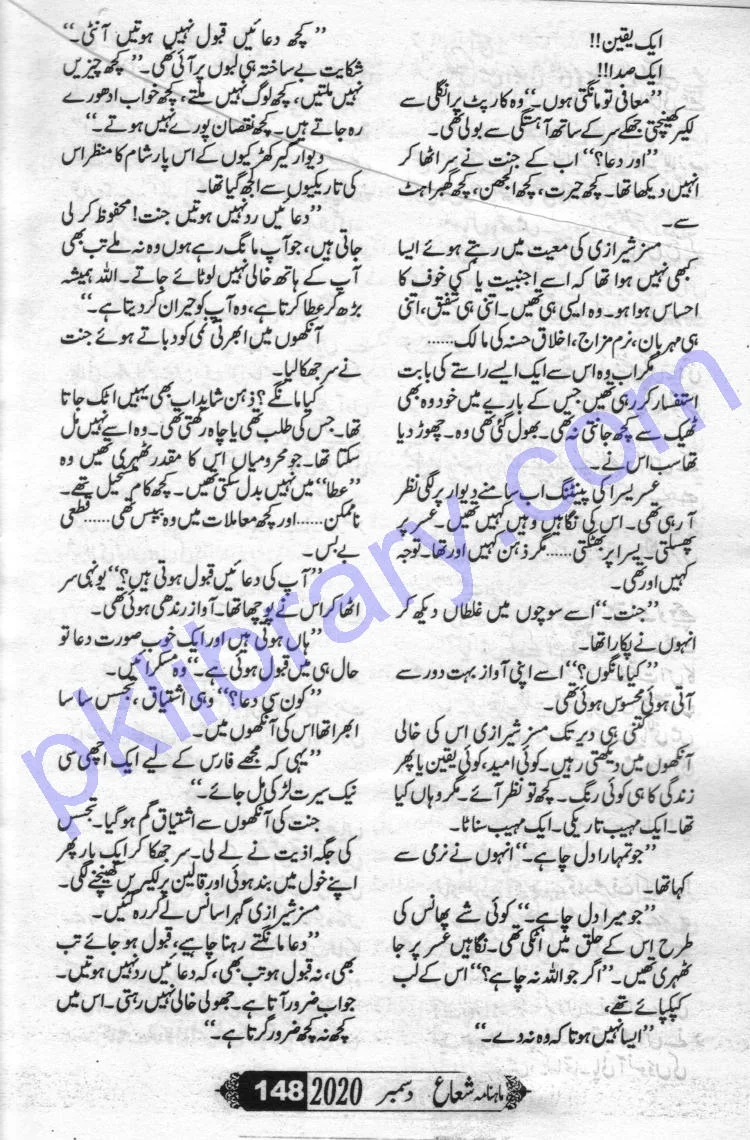 ایک یقین!!
ایک صدا!!
”معافی تو مانگتی ہوں۔“ وہ کارپٹ پر انگلی سے
لکیر کھینچتی جھکے سر کے ساتھ آہستگی سے بولی تھی۔
”اور دعا؟“ اب کے جنت نے سر اٹھا کر
انہیں دیکھا تھا۔ کچھ حیرت، کچھ الجھن، کچھ گھبراہٹ
سے۔
مسز شیرازی کی معیت میں رہتے ہوئے ایسا
کبھی نہیں ہوا تھا کہ اسے اجنبیت یا کسی خوف کا
احساس ہوا ہو۔ وہ ایسی ہی تھیں۔ اتنی ہی شفیق، اتنی
ہی مہربان، نرم مزاج، اخلاق حسنہ کی مالک......
مگر اب وہ اس سے ایک ایسے راستے کی بابت
استفسار کر رہی تھیں جس کے بارے میں خود وہ بھی
ٹھیک سے کچھ جانتی نہ تھی۔ بھول گئی تھی وہ۔ چھوڑ دیا
تھا سب اس نے۔
عسر یسرا کی پینٹنگ اب سامنے دیوار پر لگی نظر
آ رہی تھی۔ اس کی نگاہیں وہیں کہیں تھیں۔ عسر پر
پھسلتی۔ یسرا پر بھٹکتی...... مگر ذہن کہیں اور تھا۔ توجہ
کہیں اور تھی۔
”جنت۔“ اسے سوچوں میں غلطاں دیکھ کر
انہوں نے پکارا تھا۔
”کیا مانگوں؟“ اسے اپنی آواز بہت دور سے
آتی ہوئی محسوس ہوئی تھی۔
کتنی ہی دیر تک مسز شیرازی اس کی خالی
آنکھوں میں دیکھتی رہیں۔ کوئی امید، کوئی یقین یا پھر
زندگی کا ہی کوئی رنگ۔ کچھ تو نظر آئے۔ مگر وہاں کیا
تھا۔ ایک مہیب تاریکی۔ ایک مہیب سناٹا۔
”جو تمہارا دل چاہے۔“ انہوں نے نرمی سے
کہا تھا۔
”جو میرا دل چاہے۔“ کوئی شے پھانس کی
طرح اس کے حلق میں اٹکی تھی۔ نگاہیں عسر پر جا
ٹھہری تھیں۔ ”اگر جو اللہ نہ چاہے؟“ اس کے لب
کپکپائے تھے،
”ایسا نہیں ہوتا کہ وہ نہ دے۔“
”کچھ دعائیں قبول نہیں ہوتیں آنٹی۔“
شکایت بے ساختہ ہی لبوں پر آئی تھی۔ ”کچھ چیزیں
نہیں ملتیں، کچھ لوگ نہیں ملتے، کچھ خواب ادھورے
رہ جاتے ہیں۔ کچھ نقصان پورے نہیں ہوتے۔“
دیوار گیر کھڑکیوں کے اس پار شام کا منظر اس
کی تاریکیوں سے الجھ گیا تھا۔
”دعائیں رد نہیں ہوتیں جنت! محفوظ کر لی
جاتی ہیں، جو آپ مانگ رہے ہوں وہ نہ ملے تب بھی
آپ کے ہاتھ خالی نہیں لوٹائے جاتے۔ اللہ ہمیشہ
بڑھ کر عطا کرتا ہے، وہ آپ کو حیران کر دیتا ہے۔“
آنکھوں میں ابھرتی نمی کو دباتے ہوئے جنت
نے سر جھکا لیا۔
کیا مانگے؟ ذہن شاید اب بھی یہیں اٹک جاتا
تھا۔ جس کی طلب تھی یا چاہ رکھتی تھی۔ وہ اسے نہیں مل
سکتا تھا۔ جو محرومیاں اس کا مقدر ٹھہری تھیں وہ
”عطا“ میں نہیں بدل سکتی تھیں۔ کچھ کام مستحیل تھے۔
ناممکن...... اور کچھ معاملات میں وہ بے بس تھی...... قطعی
بے بس۔
”آپ کی دعائیں قبول ہوتی ہیں؟“ یونہی سر
اٹھا کر اس نے پوچھا تھا۔ آواز رندھی ہوئی تھی۔
”ہاں ہوتی ہیں اور ایک خوب صورت دعا تو
حال ہی میں قبول ہوئی ہے۔“ وہ مسکرائیں۔
”کون سی دعا؟“ وہی اشتیاق، تجسس سا سا
ابھرا تھا اس کی آنکھوں میں۔
”یہی کہ مجھے فارس کے لیے ایک اچھی سی
نیک سیرت لڑکی مل جائے۔“
جنت کی آنکھوں سے اشتیاق گم ہو گیا۔ تجسس
کی جگہ اذیت نے لے لی۔ سر جھکا کر ایک بار پھر
اپنے خول میں بند ہوئی اور قالین پر لکیریں کھینچنے لگی۔
مسز شیرازی گہرا سانس لے کر رہ گئیں۔
”دعا مانگتے رہنا چاہیے، قبول ہو جائے تب
بھی، نہ قبول ہو تب بھی، کہ دعائیں رد نہیں ہوتیں۔
جواب ضرور آتا ہے۔ جھولی خالی نہیں رہتی۔ اس میں
کچھ نہ کچھ ضرور گرتا ہے۔“
ماہنامہ شعاع دسمبر 2020 148
pklibrary.com